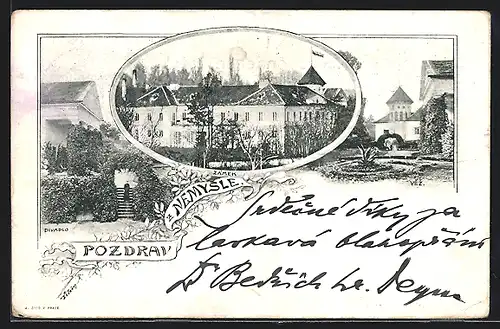 ZÁMEK
Z NEMYŠLE
DIVADLO
POZDRAV
Srdečné díky za
laskavá blahopřání
Dr Bedřich hr. Deym